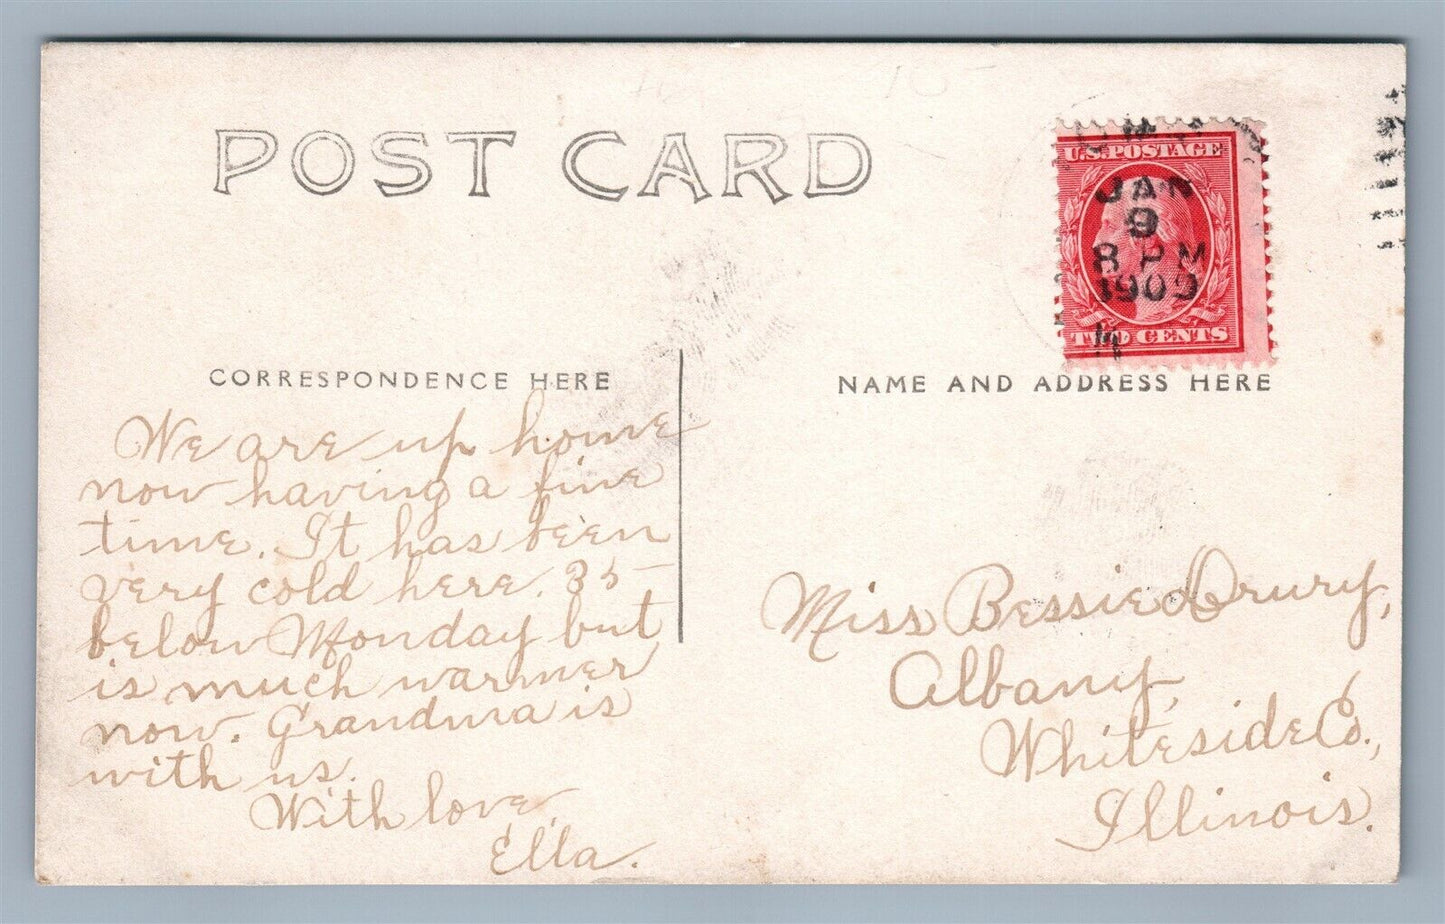 POST CARD
U.S. POSTAGE
JAN
9
8 PM
1909
TWO CENTS
CORRESPONDENCE HERE
We are up home
now having a fine
time. It has been
very cold here. 35-
below Monday but
is much warmer
now. Grandma is
with us.
With love,
Ella.
NAME AND ADDRESS HERE
Miss Bessie Drury,
Albany,
Whiteside Co.,
Illinois.